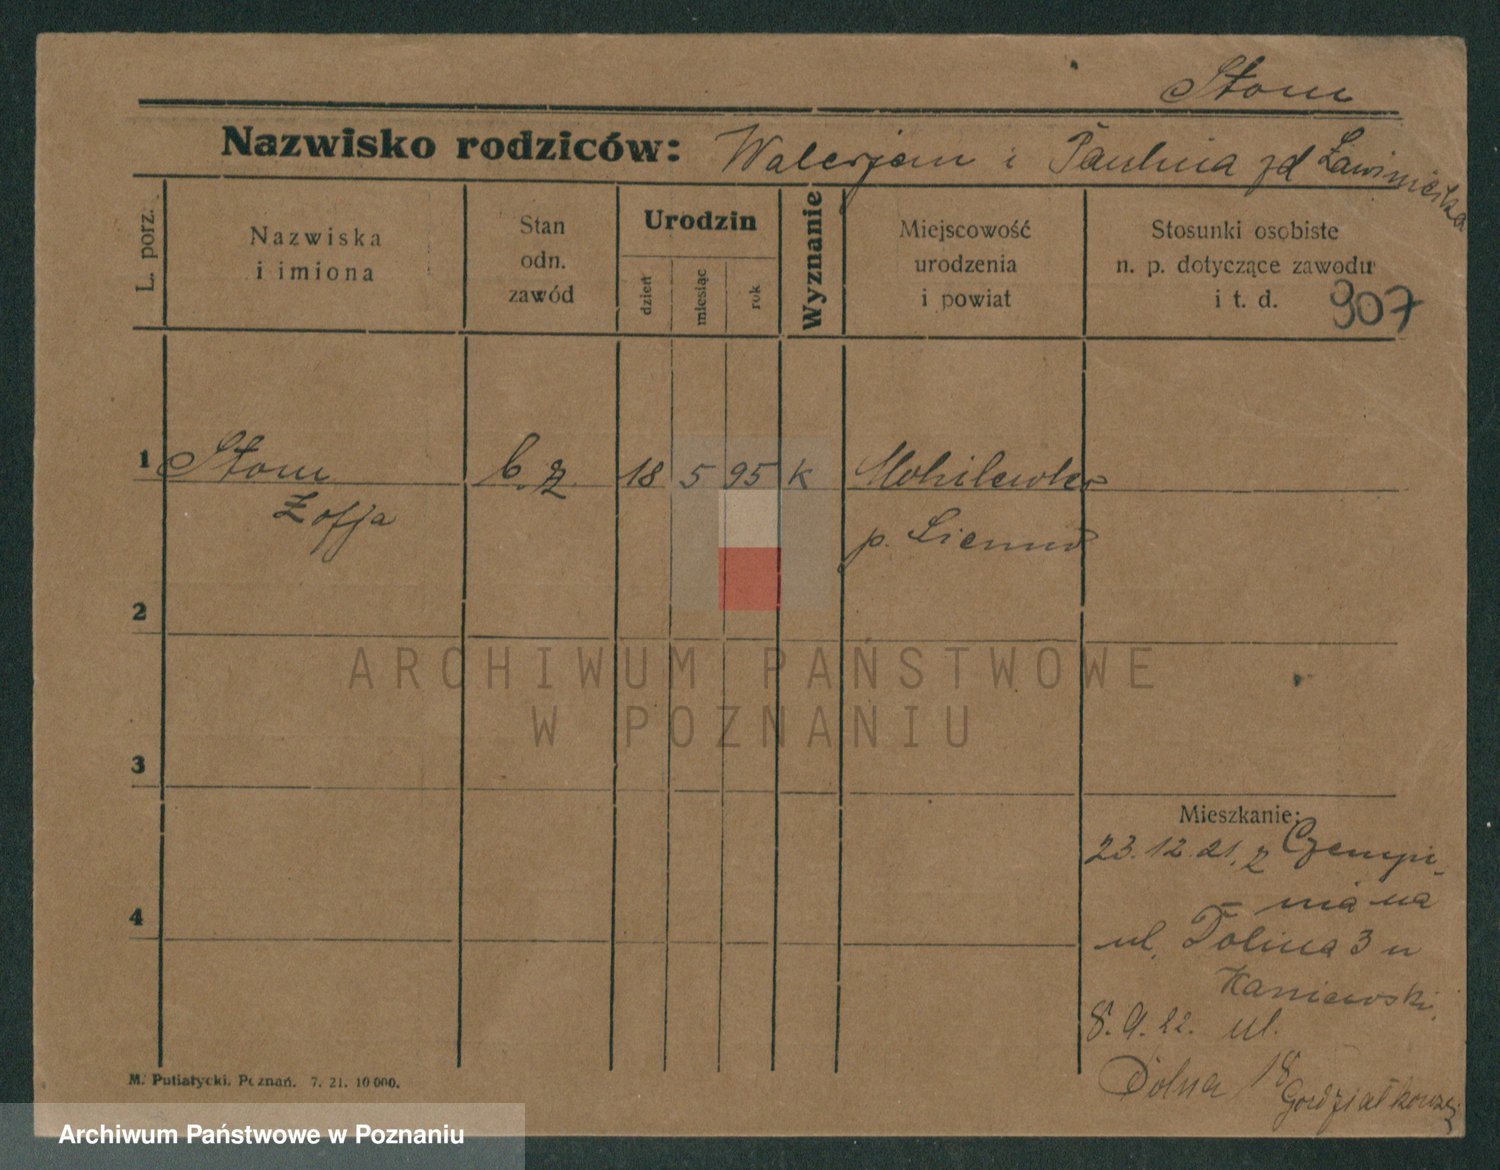 Stom
Nazwisko rodziców: Walerjan i Paulina zd
L. porz.
Nazwiska
i imiona
Stan
odn.
zawód
Urodzin
dzień
miesiąc
rok
Wyznanie
Miejscowość
urodzenia
i powiat
Stosunki osobiste
n. p. dotyczące zawodu
i t. d.
907
1 Stom 18 5 95 K Mohilewka
Zofja
p.
2
3
4
Mieszkanie:
23.12.21. z Czempi-
nia na
ul. Dolina 3 u
Kaniewski.
8.9.22. ul.
Dolna 18
M. Putiatycki, Poznań. 7. 21. 10 000.
ARCHIWUM PAŃSTWOWE
W POZNANIU
Archiwum Państwowe w Poznaniu